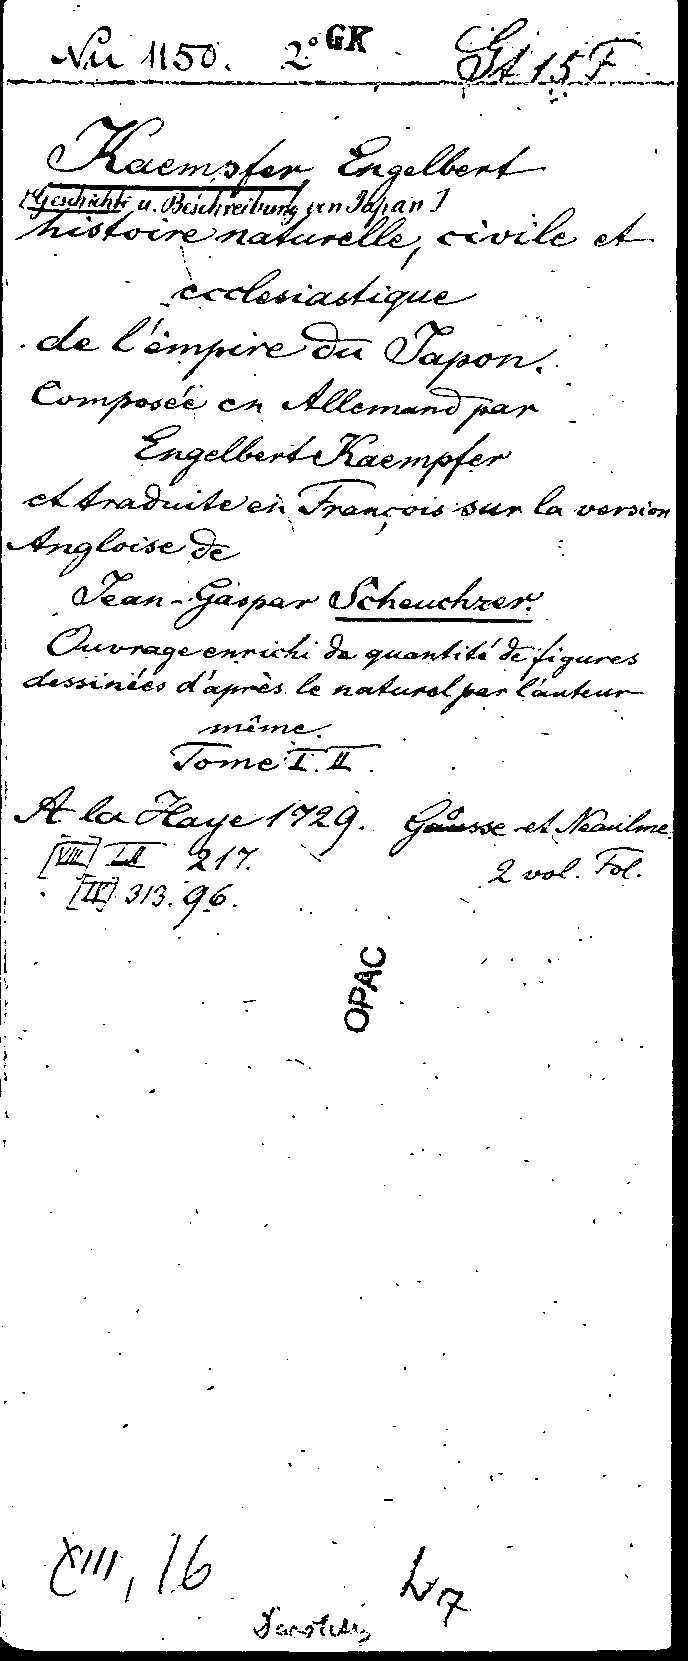 Nu 1150. 2° GK St 15 F
Kaempfer, Engelbert
[Geschichte u. Beschreibung von Japan]
histoire naturelle, civile et
ecclesiastique
de l'êmpire du Japon.
Composée en Allemand par
Engelbert Kaempfer
et traduite en François sur la version
Angloise de
Jean-Gaspar Scheuchzer.
Ouvrage enrichi de quantité de figures
dessinées d'après le naturel par l'auteur
même.
Tome I. II.
A la Haye 1729. Gosse et Neaulme
[VIII] LII 217. 2 vol. Fol.
[IV] 313. 96.
OPAC
XIII, 16